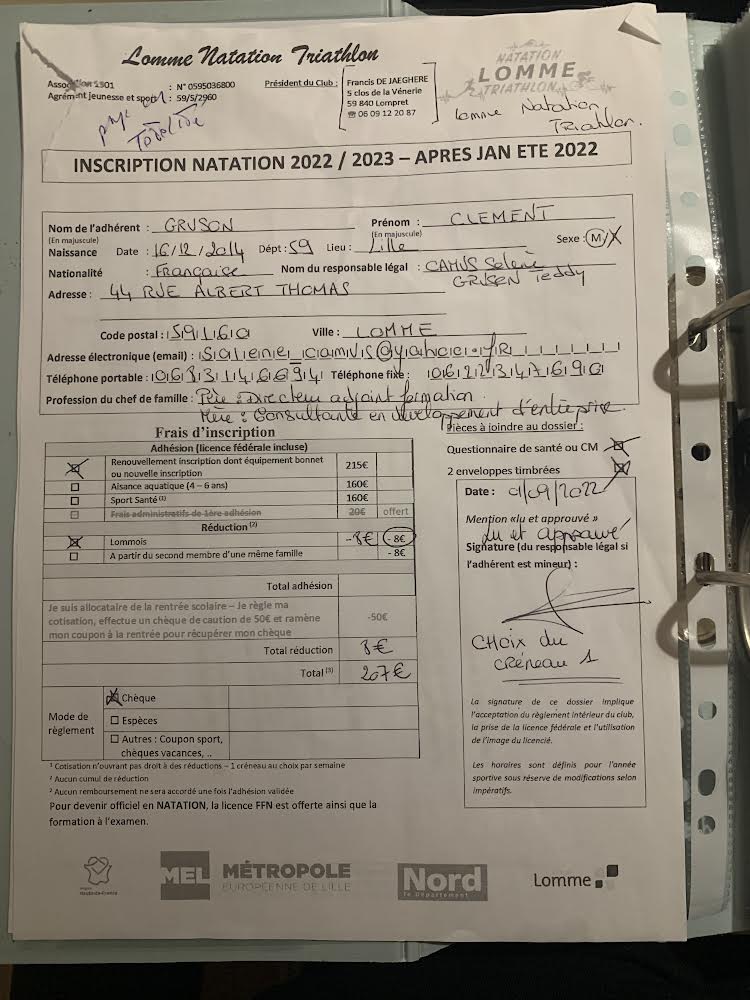 Lomme Natation Triathlon
Association 1901 : N° 0595036800
Agrément jeunesse et sport : 59/S/2960
Président du Club :
Francis DE JAEGHERE
5 clos de la Vénerie
59 840 Lompret
☎ 06 09 12 20 87
NATATION
LOMME
TRIATHLON
Lomme Natation
Triathlon.
INSCRIPTION NATATION 2022 / 2023 – APRES JAN ETE 2022
Nom de l'adhérent : GRUSON Prénom : CLEMENT
(En majuscule) (En majuscule)
Naissance Date : 16/12/2014 Dépt : 59 Lieu : Lille Sexe : M/X
Nationalité : Française Nom du responsable légal : CAMUS Selene
GRUSON Teddy
Adresse : 44 RUE ALBERT THOMAS
Code postal : 59160 Ville : LOMME
Adresse électronique (email) : selene_camus@yahoo.fR
Téléphone portable : 0683146694 Téléphone fixe : 0622347690
Profession du chef de famille : Père : Directeur adjoint formation.
Mère : Consultante en développement d'entreprise.
Frais d'inscription
Adhésion (licence fédérale incluse)
☒ Renouvellement inscription dont équipement bonnet 215€
ou nouvelle inscription
☐ Aisance aquatique (4 – 6 ans) 160€
☐ Sport Santé (1) 160€
☐ Frais administratifs de 1ère adhésion 20€ offert
Réduction (2)
☒ Lommois -8€ - 8€
☐ A partir du second membre d'une même famille - 8€
Total adhésion
Je suis allocataire de la rentrée scolaire – Je règle ma
cotisation, effectue un chèque de caution de 50€ et ramène -50€
mon coupon à la rentrée pour récupérer mon chèque
Total réduction 8€
Total (3) 207€
Mode de
règlement
☒ Chèque
☐ Espèces
☐ Autres : Coupon sport,
chèques vacances, ..
¹ Cotisation n'ouvrant pas droit à des réductions – 1 créneau au choix par semaine
² Aucun cumul de réduction
² Aucun remboursement ne sera accordé une fois l'adhésion validée
Pour devenir officiel en NATATION, la licence FFN est offerte ainsi que la
formation à l'examen.
Pièces à joindre au dossier :
Questionnaire de santé ou CM ☒
2 enveloppes timbrées ☒
Date : 01/09/2022
Mention «lu et approuvé »
lu et approuvé
Signature (du responsable légal si
l'adhérent est mineur) :
CHoix du
CRéneau 1
La signature de ce dossier implique
l'acceptation du règlement intérieur du club,
la prise de la licence fédérale et l'utilisation
de l'image du licencié.
Les horaires sont définis pour l'année
sportive sous réserve de modifications selon
impératifs.
Hauts-de-France
MEL MÉTROPOLE
EUROPÉENNE DE LILLE
Nord
le Département
Lomme